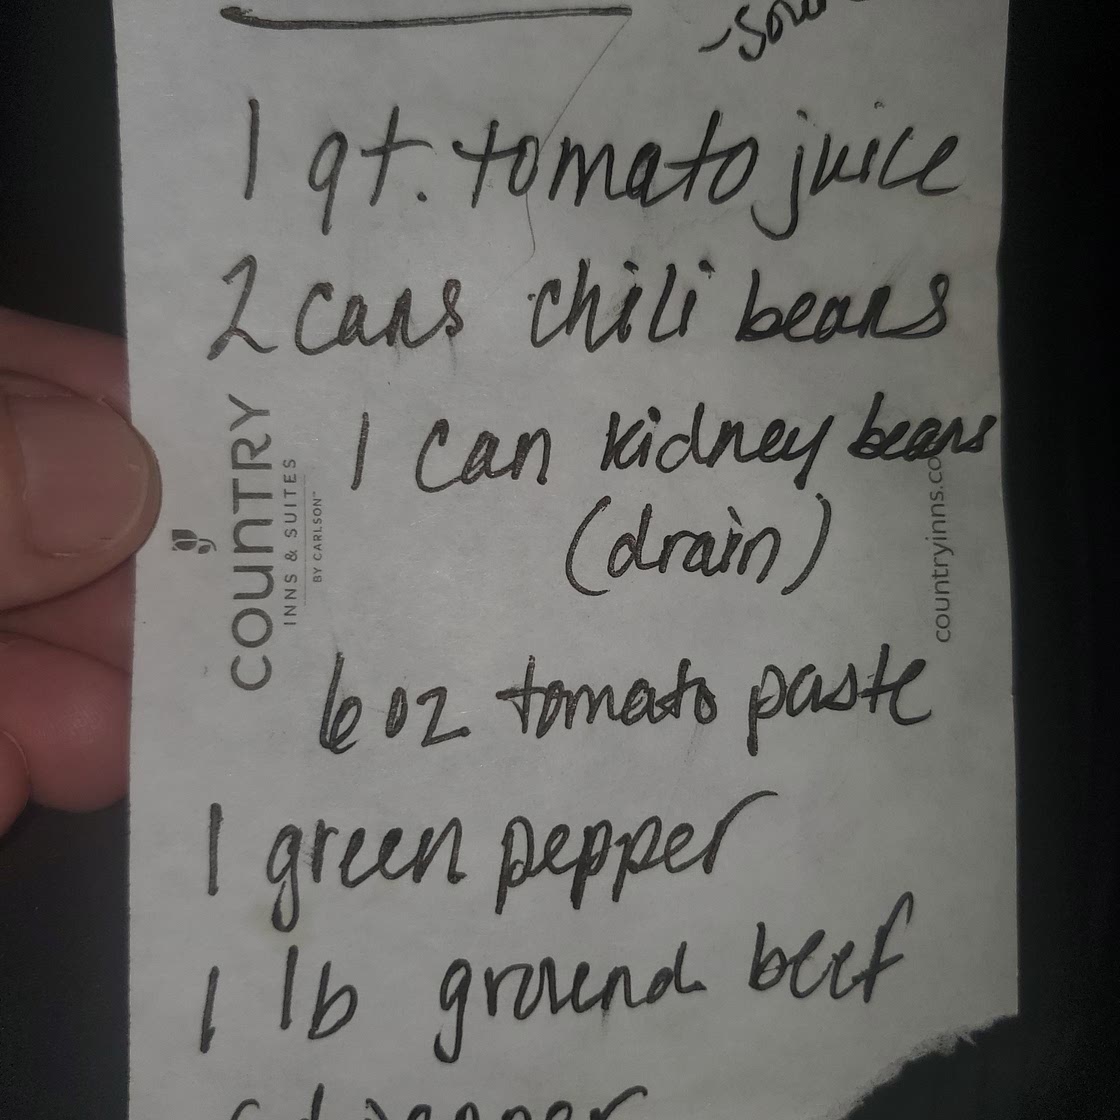 1 qt. tomato juice
2 cans chili beans
1 can kidney beans
(drain)
6 oz tomato paste
1 green pepper
1 lb ground beef
COUNTRY
INNS & SUITES
BY CARLSON™
countryinns.co